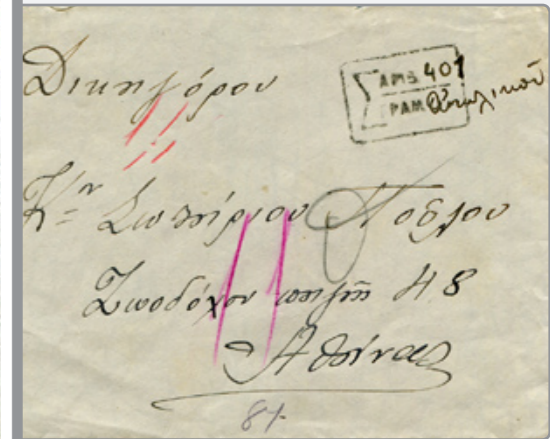 Δικηγόρου
ΑΡΙΘ 401
ΓΡΑΜ
Κον Σωτήριον
Ζωοδόχου πηγῆς 48
Ἀθήνας
87.